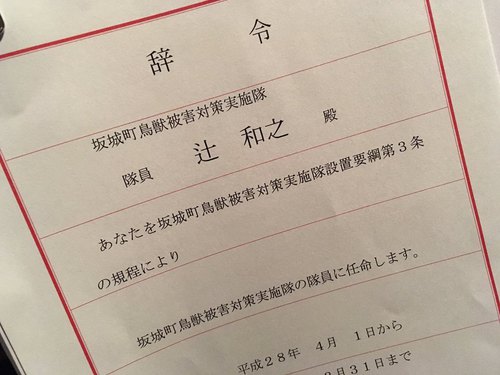 辞 令
坂城町鳥獣被害対策実施隊
隊員 辻 和之 殿
あなたを坂城町鳥獣被害対策実施隊設置要綱第3条
の規程により
坂城町鳥獣被害対策実施隊の隊員に任命します。
平成28年 4月 1日から
月31日まで